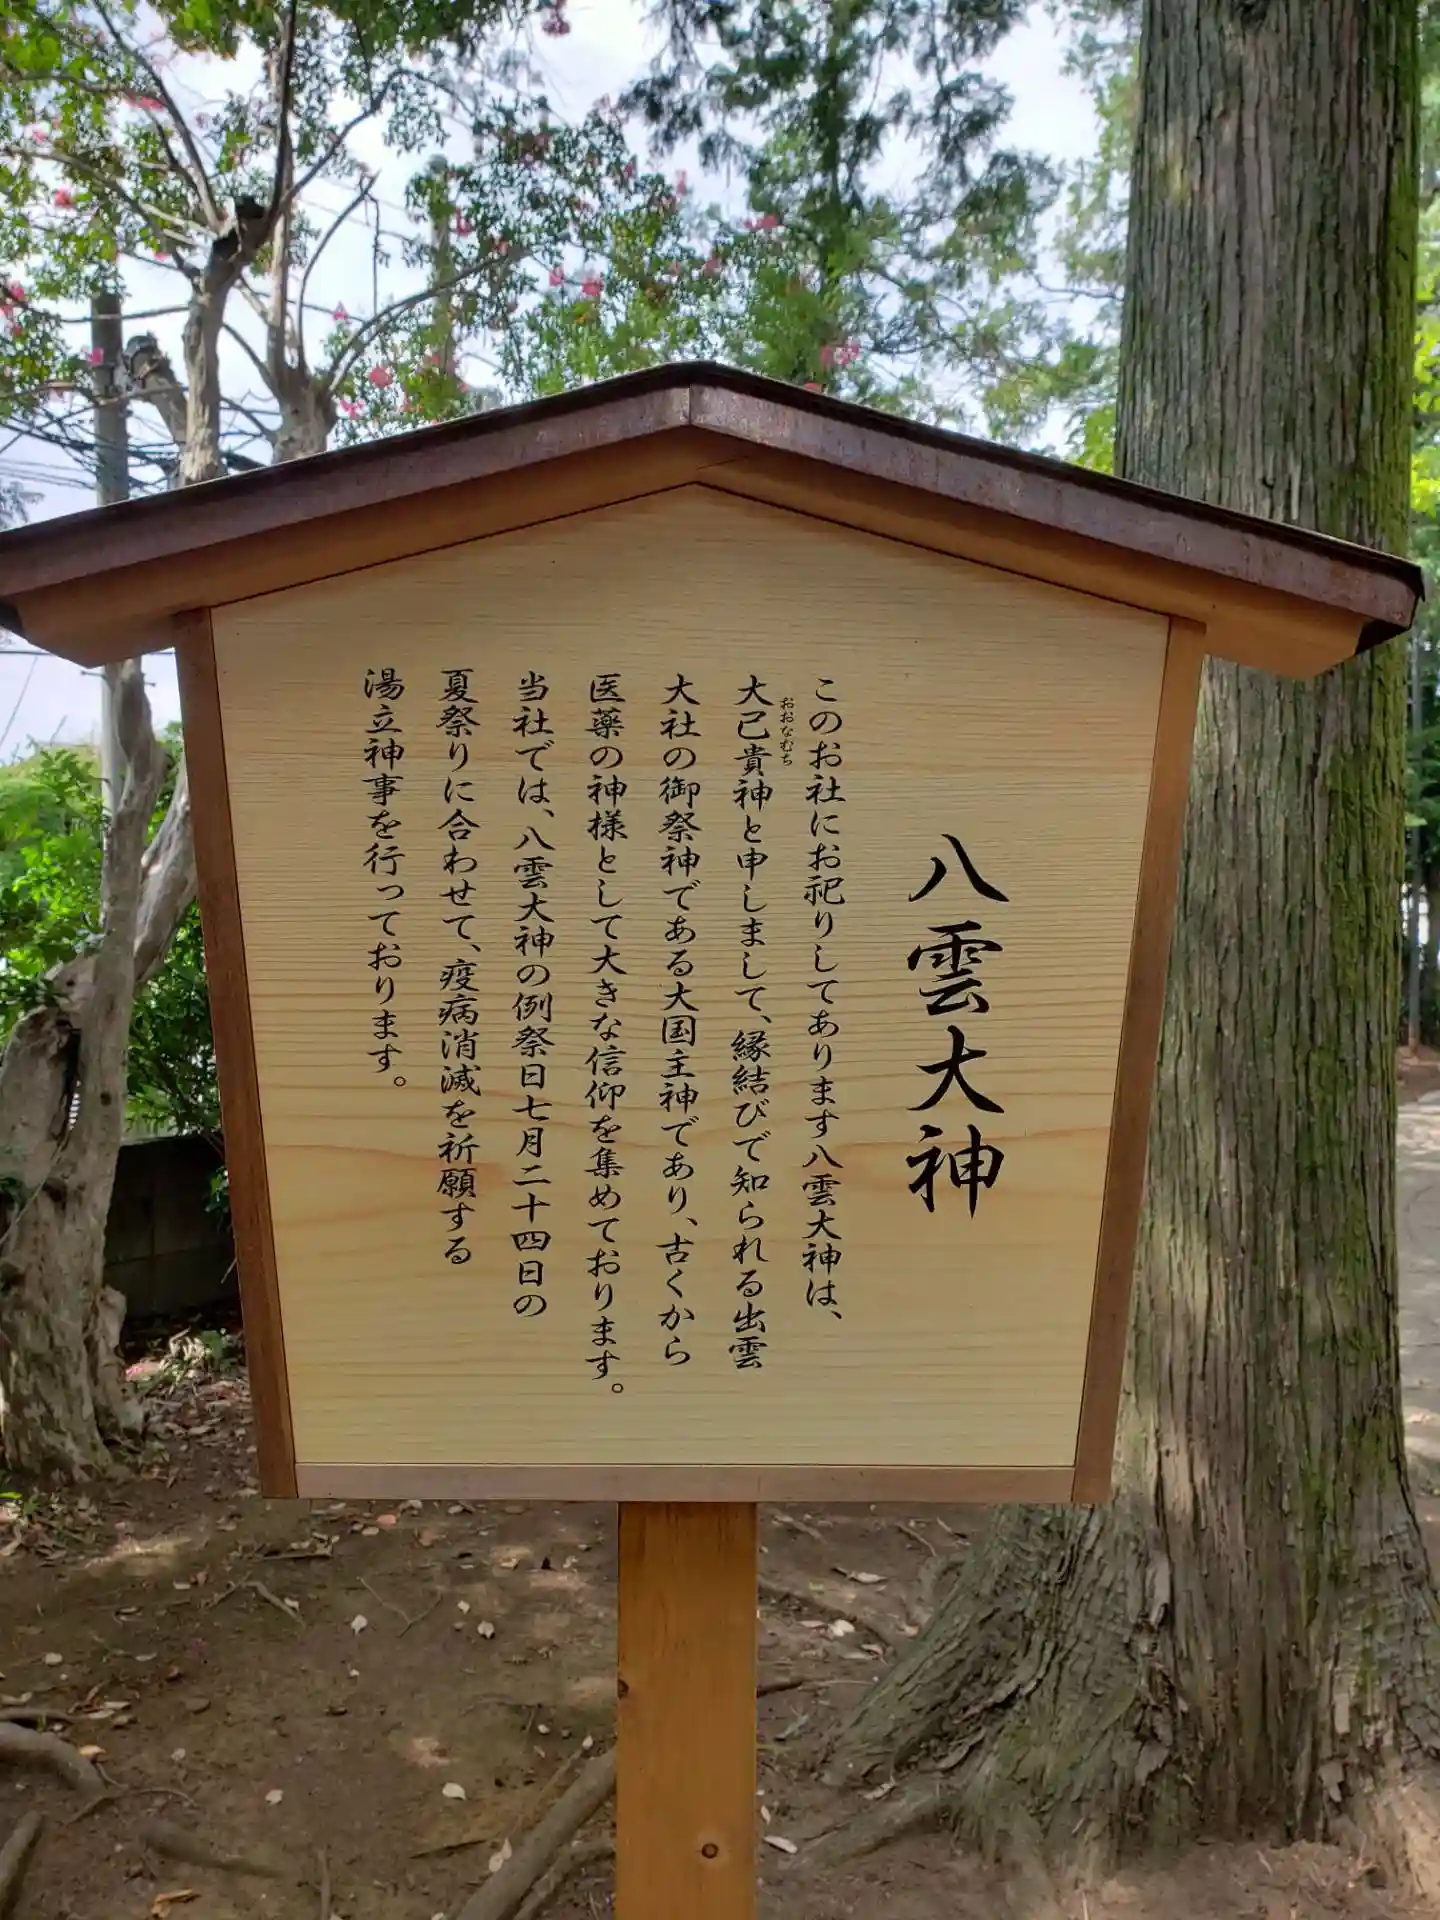 八雲大神
このお社にお祀りしてあります八雲大神は、
大己貴神と申しまして、縁結びで知られる出雲
おおなむち
大社の御祭神である大国主神であり、古くから
医薬の神様として大きな信仰を集めております。
当社では、八雲大神の例祭日七月二十四日の
夏祭りに合わせて、疫病消滅を祈願する
湯立神事を行っております。